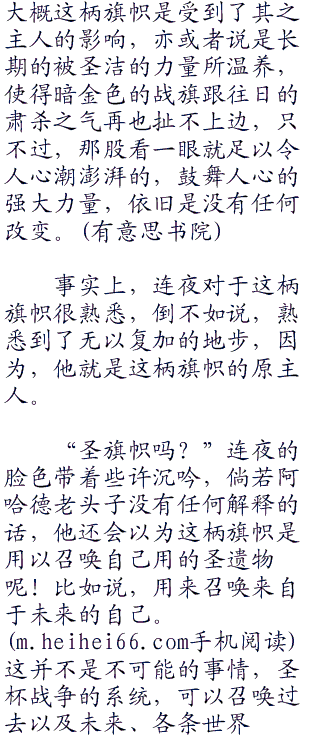 大概这柄旗帜是受到了其之
主人的影响，亦或者说是长
期的被圣洁的力量所温养，
使得暗金色的战旗跟往日的
肃杀之气再也扯不上边，只
不过，那股看一眼就足以令
人心潮澎湃的，鼓舞人心的
强大力量，依旧是没有任何
改变。(有意思书院)
事实上，连夜对于这柄
旗帜很熟悉，倒不如说，熟
悉到了无以复加的地步，因
为，他就是这柄旗帜的原主
人。
“圣旗帜吗？”连夜的
脸色带着些许沉吟，倘若阿
哈德老头子没有任何解释的
话，他还会以为这柄旗帜是
用以召唤自己用的圣遗物
呢！比如说，用来召唤来自
于未来的自己。
(m.heihei66.com手机阅读)
这并不是不可能的事情，圣
杯战争的系统，可以召唤过
去以及未来、各条世界